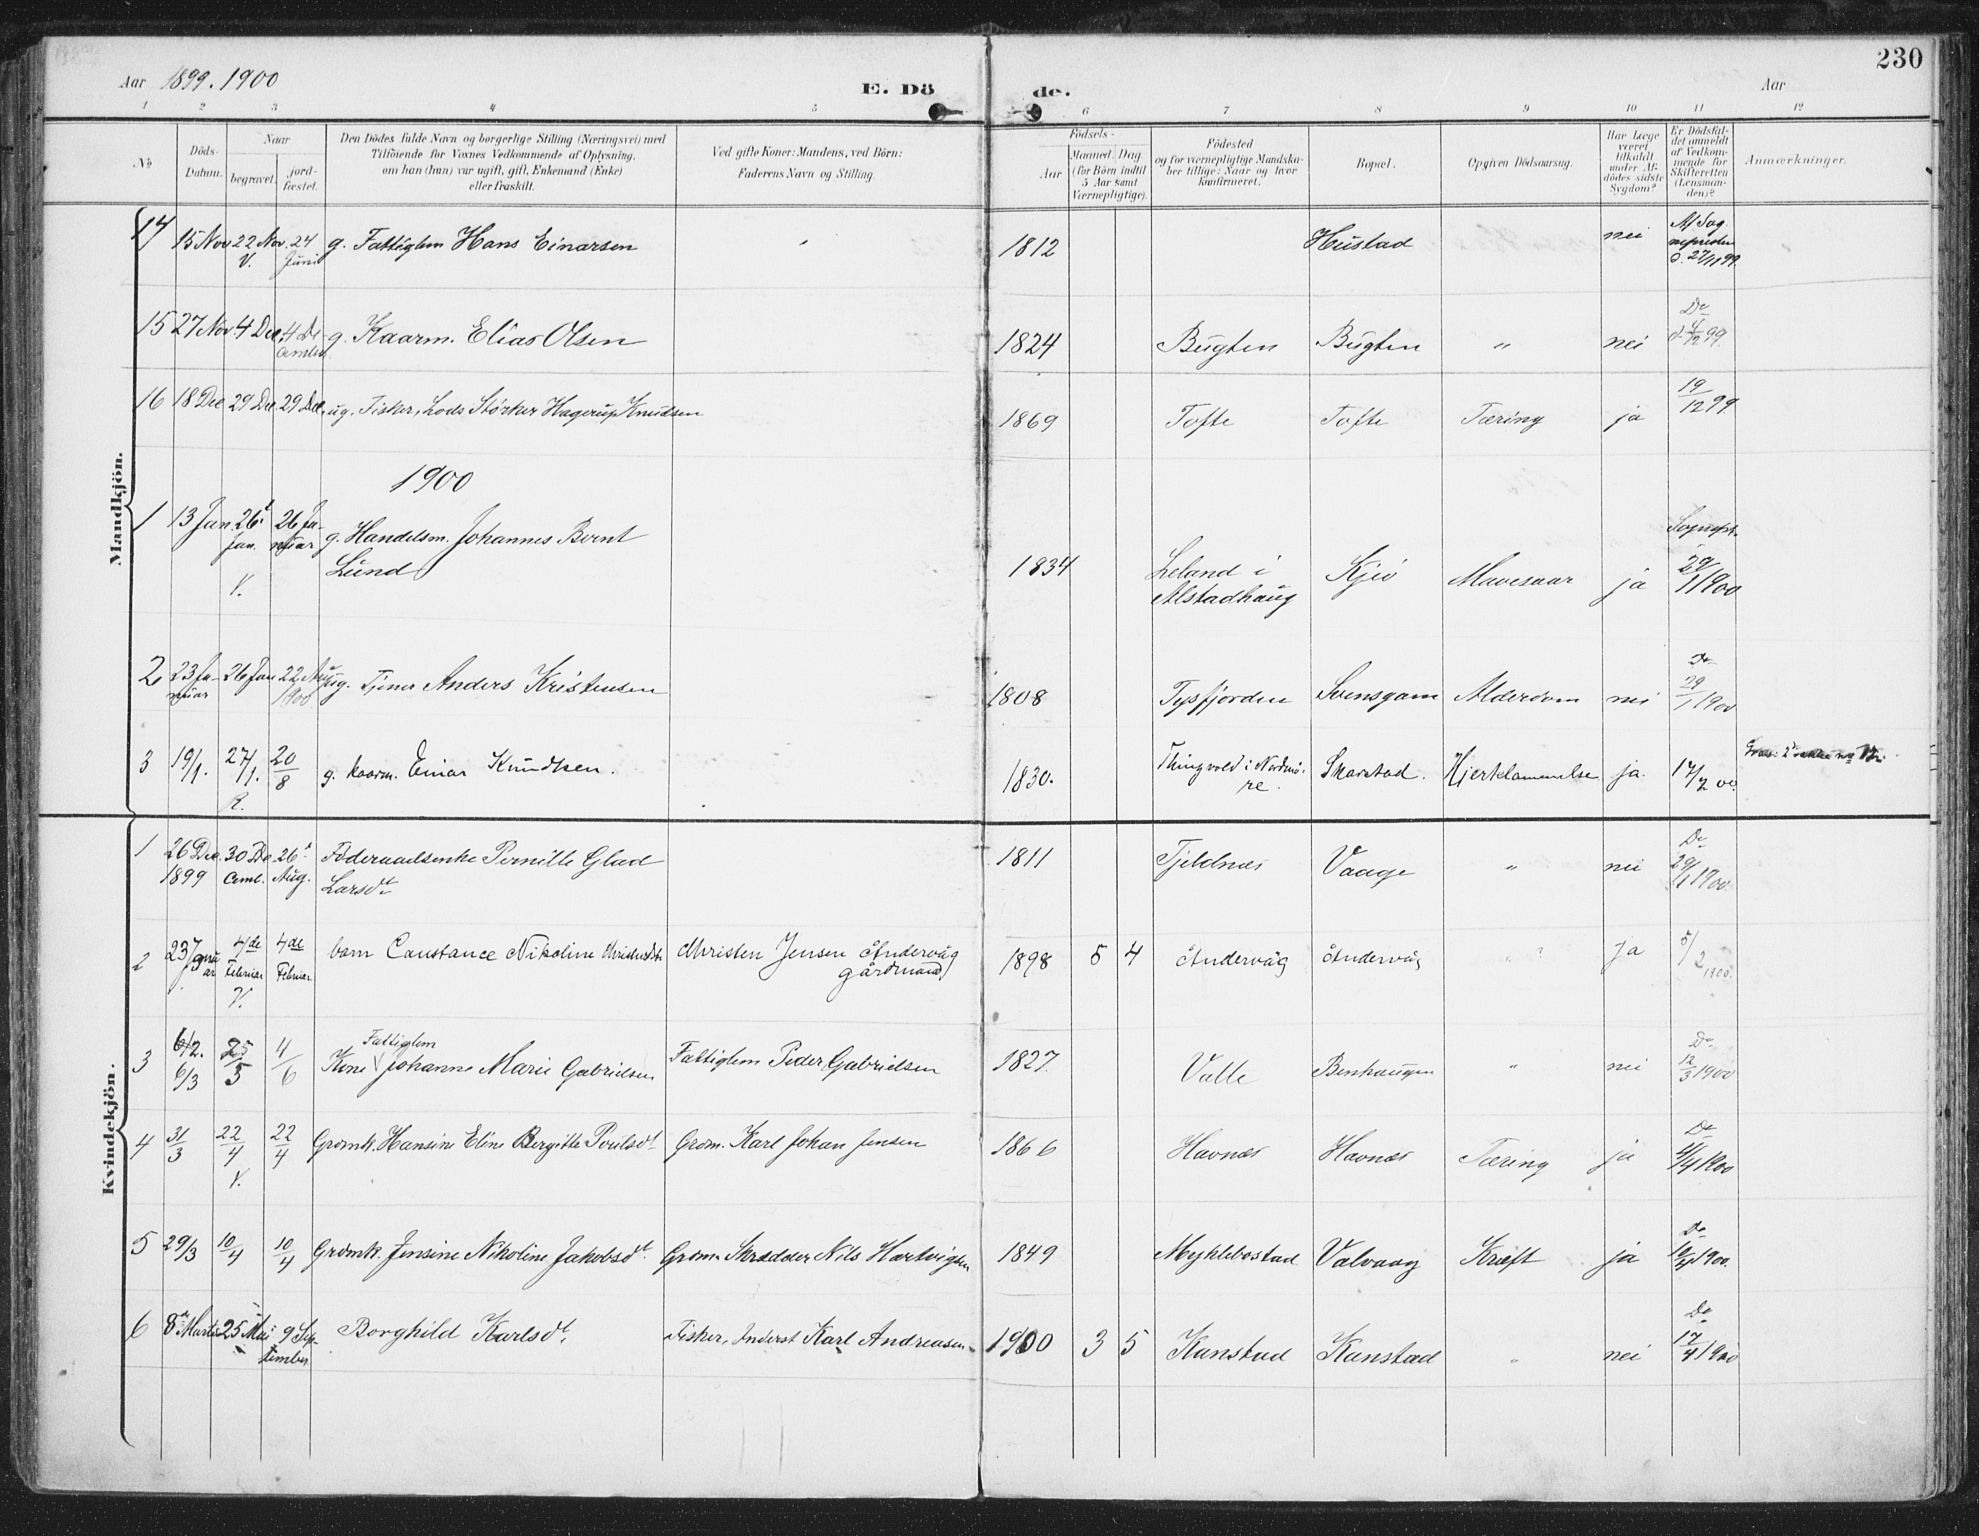 230
Aar 1899. 1900
E. Dö de.
Aar
1 2 3 4 5 6 7 8 9 10 11 12
No
Döds-Datum.
Naar
begravet.
jord-fæstet.
Den Dödes fulde Navn og borgerlige Stilling (Næringsvei) med
Tilföiende for Voxnes Vedkommende af Oplysning,
om han (hun) var ugift, gift, Enkemand (Enke)
eller fraskilt.
Ved gifte Koner: Mandens, ved Börn:
Faderens Navn og Stilling.
Födsels-
Aar
Maaned. Dag.
(for Börn indtil
5 Aar samt
Værnepligtige).
Födested
og for værnepligtige Mandska-
ber tillige: Naar og hvor
konfirmeret.
Bopæl.
Opgiven Dödsaarsag.
Har Læge
været
tilkaldt
under Af-
dödes sidste
Sygdom?
Er Dödsfal-
det anmeldt
af Vedkom-
mende for
Skifteretten
(Lensman-
den)?
Anmærkninger.
Mandkjön.
14 15 Nov 22 Nov. V. 24 Juni g. Fattiglem Hans Einarsen 1812 Hustad nei Af Sognepresten d. 27/11 99
15 27 Nov 4 Dec 4 December g. Kaarm. Elias Olsen 1824 Bugten Bugten " nei Do d. 4/12 99
16 18 Dec 29 Dec 29 Dec. ug. Fisker, Lods Størker Hagerup Knudsen 1869 Tofte Tofte Tæring ja 19/12 99
1900
1 13 Jan 26t Jan. V. 26 Januar g. Handelsm. Johannes Bernt
Lund 1834 Leland i Alstadhaug Kjeö Mavesaar ja Sognepr. 29/1 1900
2 23 Januar 26 Jan 22 Aug 1900 ug. Tjener Anders Kristensen 1808 Tysfjorden Svensgam Alderdom nei Do 29/1 1900
3 19/1. 27/1. R. 20/8 g. kaarm. Einar Knudtsen. 1830. Thingvold i Nordmöre. Skarstad. Hjertelammelse ja. 17/2 00.
Kvindekjön.
1 26 Dec 1899 30 Decemb. 26t Aug. Föderaadsenke Pernille Glad
Larsdt 1811 Tjeldnæs Vaage " nei Do 29/1 1900.
2 23 Januar 4de Februar V. 4de Februar barn Constance Nikoline Christensdtr Christen Jensen Åndervåg
gårdmand 1898 5 4 Åndervåg Åndervåg " Ja 5/2 1900.
3 6/2. 6/3 25/5 4/6 Kone Fattiglem Johanne Marie Gabrielsen Fattiglem Peder Gabrielsen 1827 Valle Benhaugen " nei Do 12/3 1900
4 31/3 22/4 V. 22/4 Grdmk. Hansine Eline Bergitte Poulsdt Grdm. Karl Johan Jensen 1866 Havnæs Havnæs Tæring ja Do 4/4 1900
5 29/3 10/4 10/4 Grdmk. Jensine Nikoline Jakobsdt. Grdm. Skrædder Nils Hartvigsen 1849 Myklebostad Valvaag Kræft ja Do 10/4 1900.
6 8de Marts 25 Mai 9 September Borghild Karlsdt. Fisker, Inderst Karl Andreasen 1900 3 5 Kanstad Kanstad " nei Do 17/4 1900